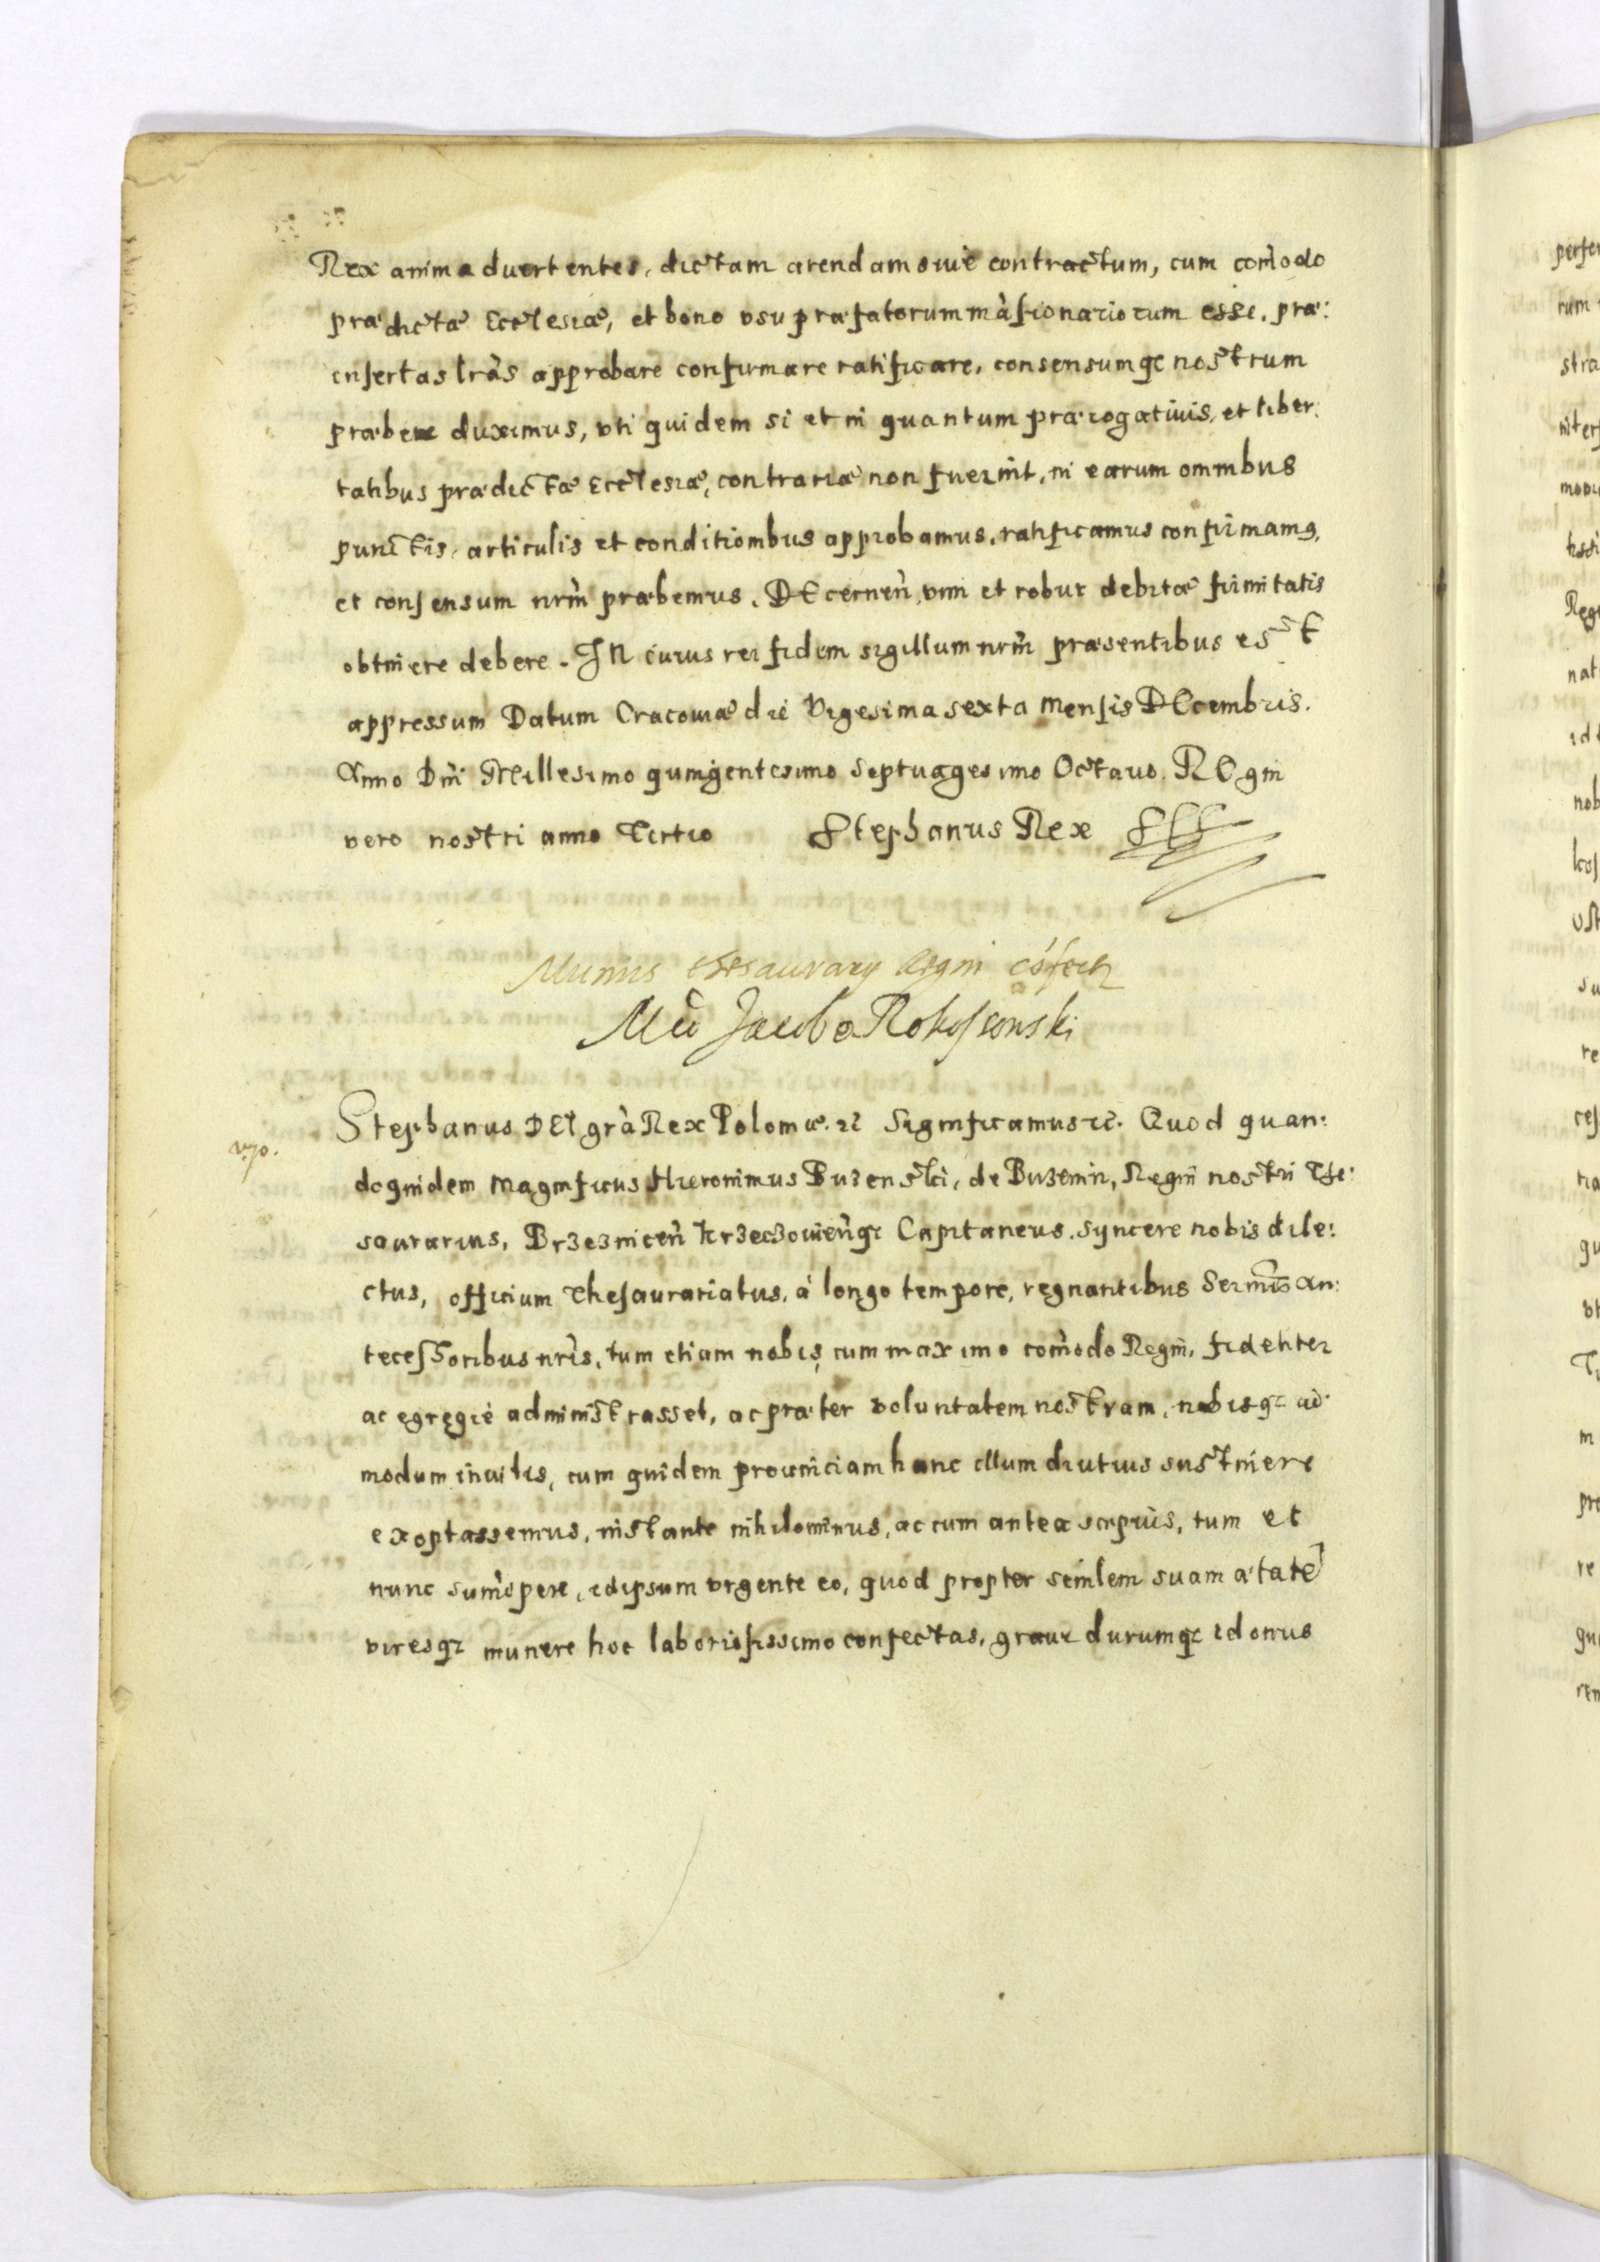 Rex animaduertentes, dictam arendam siue contractum, cum com̃odo
prædictæ Ecclesiæ, et bono vsu præfatorum mãsionariorum esse, præ:
insertas lrãs approbare confirmare ratificare, consensumq; nostrum
præbere duximus, vti quidem si et in quantum prærogatiuis, et liber:
tatibus prædictæ Ecclesiæ, contrariæ non fuerint, in earum omnibus
punctis, articulis et conditionibus approbamus, ratificamus confirmamq,
et consensum nrm̃ præbemus, DEcernen̄, vim et robur debitæ firmitatis
obtinere debere. IN cuius rei fidem sigillum nrm̃ præsentibus est
appressum Datum Cracouiæ die Vigesima sexta Mensis DEcembris.
Anno Dni̅ Millesimo quingentesimo Septuagesimo Octauo. REgni
vero nostri anno Tertio Stephanus Rex
Munus thesaurary Regni
Jacobo Rokossowski
Stephanus DEI grã Rex Poloniæ. zc̃ Significamus zc̃. Quod quan:
doquidem Magnificus Hieronimus Buzenski, de Buzenin, Regni nostri The:
saurarius, Brzeznicen̄ Krzeczouien̄q; Capitaneus. Syncere nobis dile:
ctus, officium Thesaurariatus, à longo tempore, regnantibus Sermis̃ an:
tecessoribus nrĩs, tum etiam nobis, cum maximo com̃odo Regni, fideliter
ac egregiè administrasset, ac præter voluntatem nostram, nobisq; ad:
modum inuitis, cum quidem prouinciam hanc illum diutius sustinere
exoptassemus, instante nihilominus, ac cum antea sæpius, tum et
nunc sum̃opere, idipsum vrgente eo, quod propter senilem suam ætatẽ
viresq; munere hoc laboriosissimo confectas, graue durumq; id onus